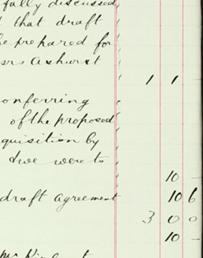 fully discussed
d that draft
be prepared for
srs Ashurst
1 1
conferring
of the proposed
quisition by
dwe were to
10 -
draft agreement 10 6
3 0 0
10 -